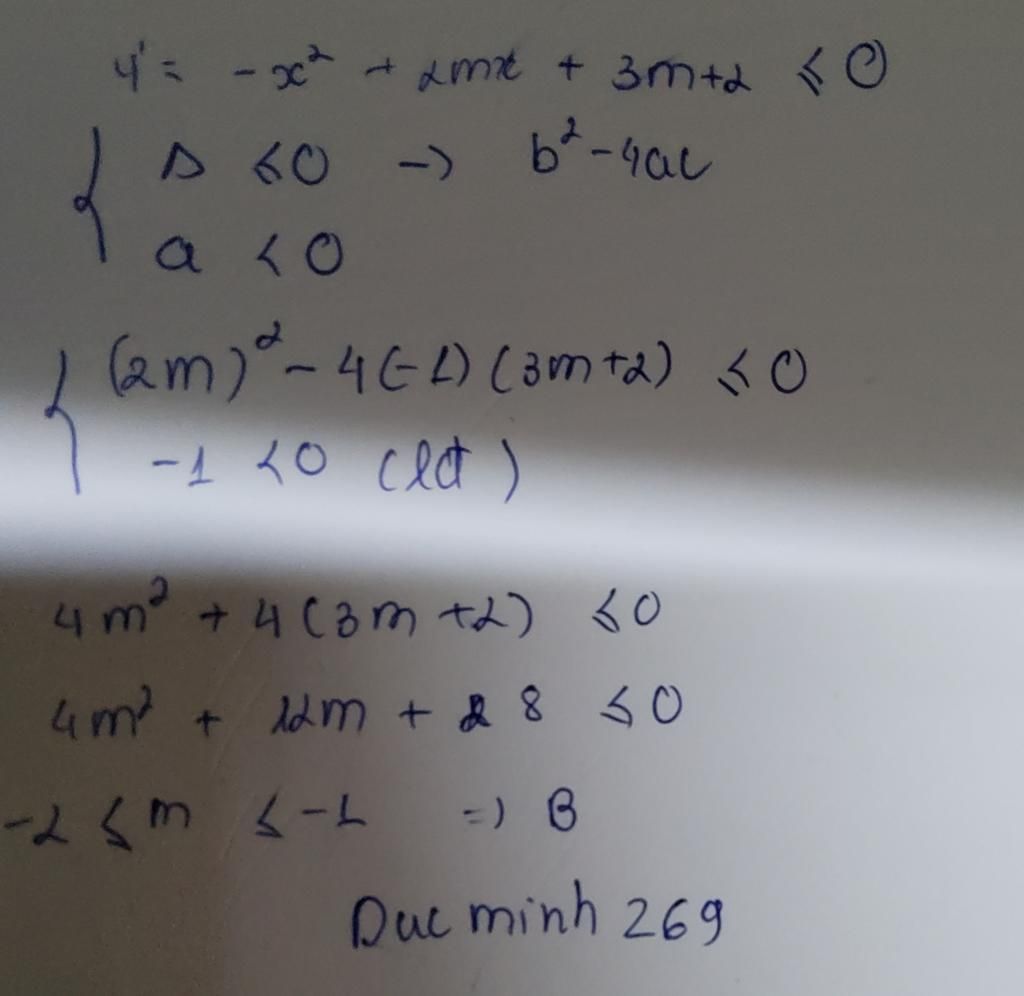 y' = -x² + 2mx + 3m+2 ≤ 0
{ Δ ≤ 0 -> b² - 4ac
a < 0
{ (2m)² - 4(-1)(3m+2) ≤ 0
-1 < 0 (lđ)
4m² + 4(3m+2) ≤ 0
4m² + 12m + 8 ≤ 0
-2 ≤ m ≤ -1 => B
Duc minh 269